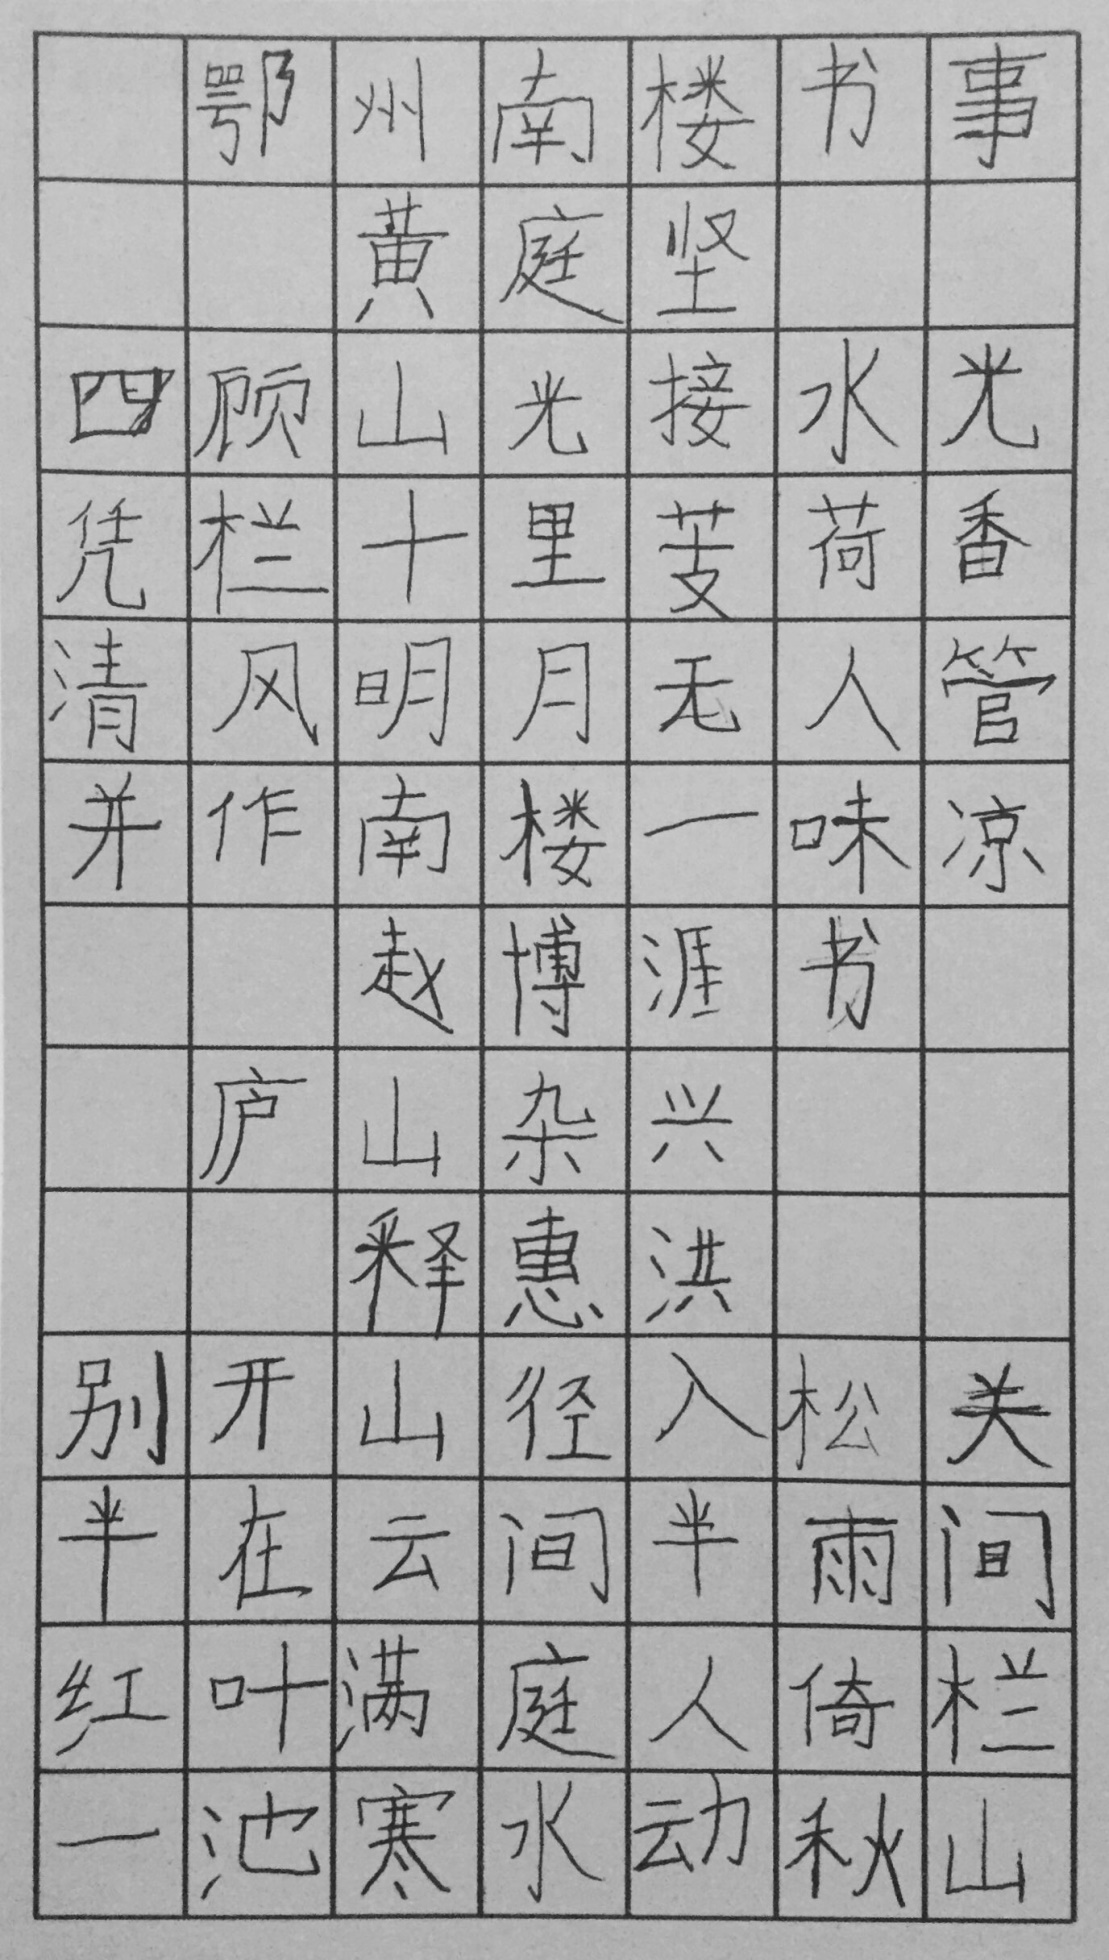 鄂州南楼书事
黄庭坚
四顾山光接水光
凭栏十里芰荷香
清风明月无人管
并作南楼一味凉
赵博涯书
庐山杂兴
释惠洪
别开山径入松关
半在云间半雨间
红叶满庭人倚栏
一池寒水动秋山